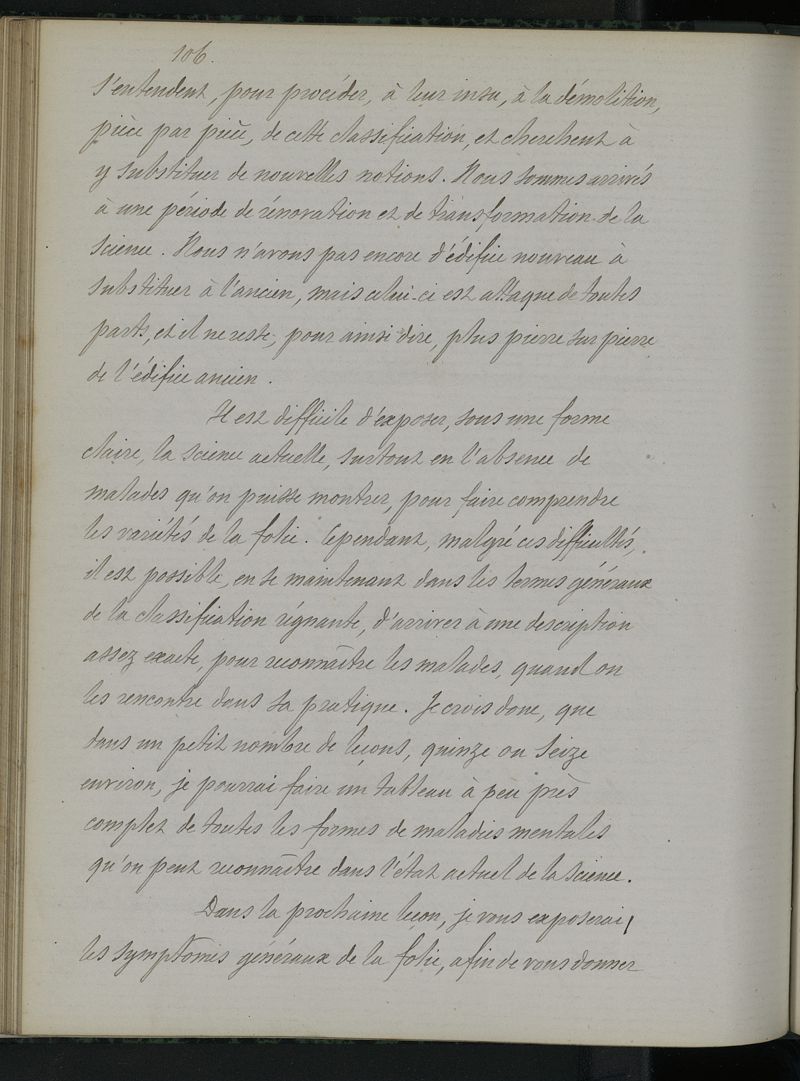 106.
s'entendent, pour procéder, à leur insu, à la démolition,
pièce par pièce, de cette classification, et cherchent à
y substituer de nouvelles notions. Nous sommes arrivés
à une période de rénovation et de transformation de la
science. Nous n'avons pas encore d'édifice nouveau à
substituer à l'ancien, mais celui-ci est attaqué de toutes
parts, et il ne reste, pour ainsi dire, plus pierre sur pierre
de l'édifice ancien.
Il est difficile d'exposer, sous une forme
claire, la science actuelle, surtout en l'absence de
malades qu'on puisse montrer, pour faire comprendre
les variétés de la folie. Cependant, malgré ces difficultés,
il est possible, en se maintenant dans les termes généraux
de la classification régnante, d'arriver à une description
assez exacte, pour reconnaître les malades, quand on
les rencontre dans sa pratique. Je crois donc, que
dans un petit nombre de leçons, quinze ou seize
environ, je pourrai faire un tableau à peu près
complet de toutes les formes de maladies mentales
qu'on peut reconnaître dans l'état actuel de la science.
Dans la prochaine leçon, je vous exposerai,
les symptômes généraux de la folie, afin de vous donner